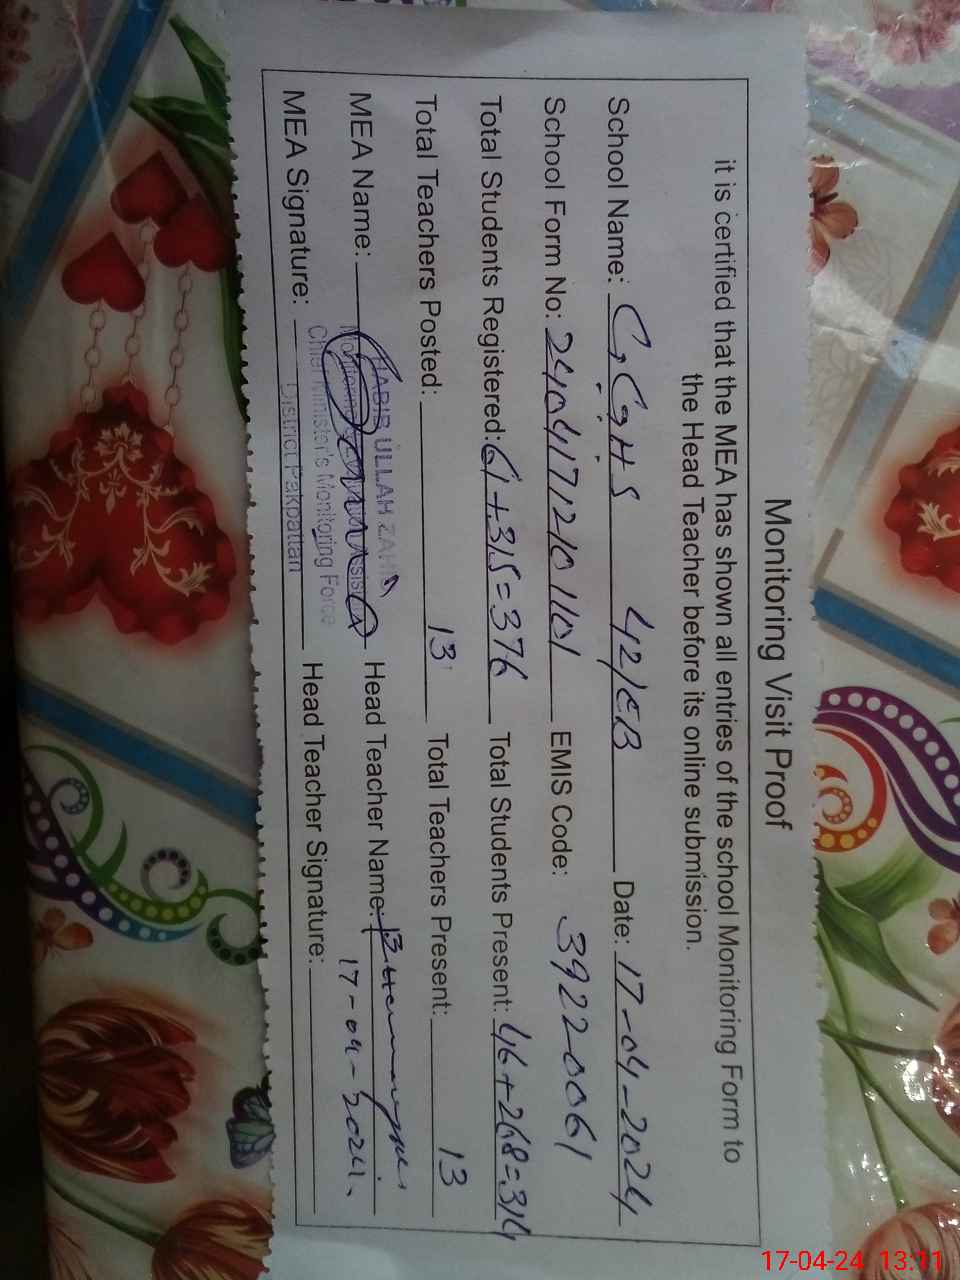 Monitoring Visit Proof
it is certified that the MEA has shown all entries of the school Monitoring Form to
the Head Teacher before its online submission.
School Name: G.G.H.S 42/EB Date: 17-04-2024
School Form No: 24041712101101 EMIS Code: 39220061
Total Students Registered: 61+315=376 Total Students Present: 46+268=314
Total Teachers Posted: 13 Total Teachers Present: 13
MEA Name: HABIB ULLAH ZAHID Head Teacher Name:
Monitoring
MEA Signature: Chief Minister's Monitoring Force Head Teacher Signature: 17-04-2024
District Pakpattan
17-04-24 13:11